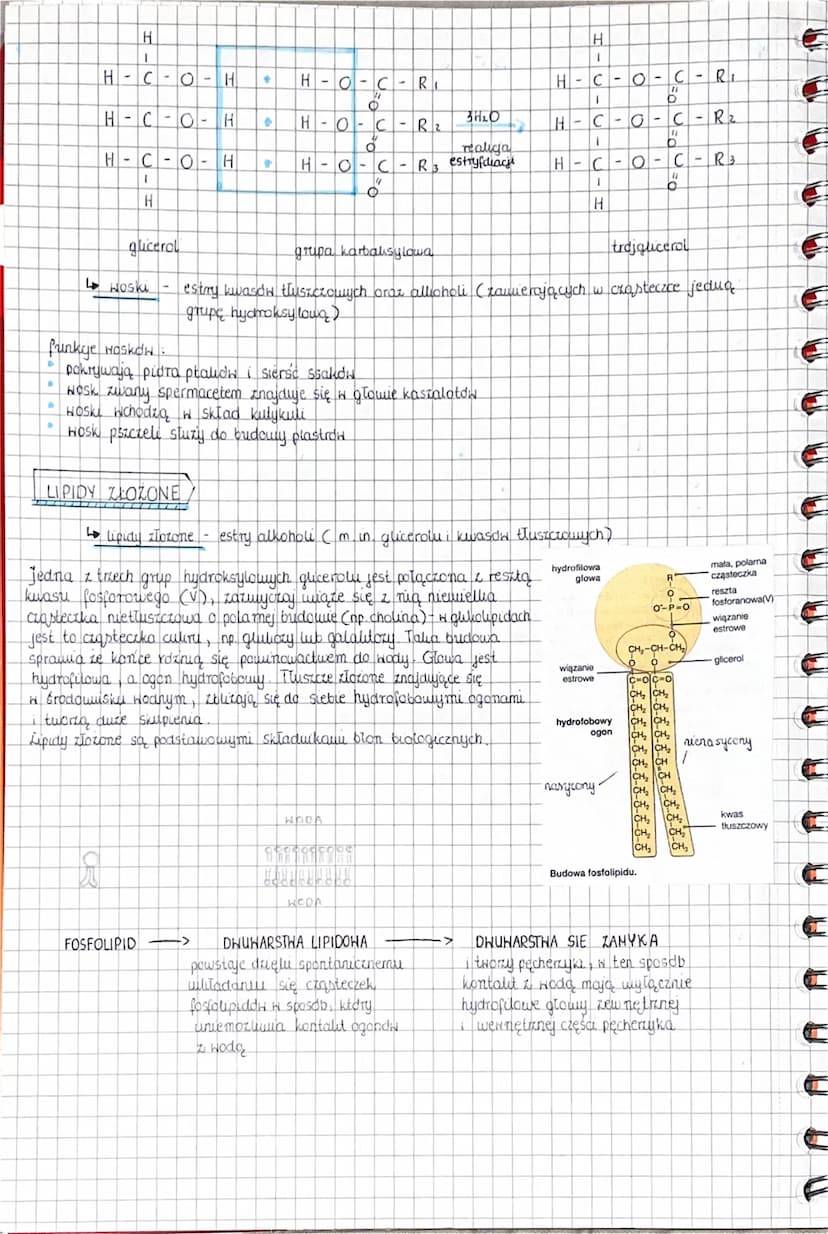 H H
H - C - O - H • H - O - C - R1 H - C - O - C - R1
O O
H - C - O - H • H - O - C - R2 3H2O H - C - O - C - R2
O reakcja O
H - C - O - H • H - O - C - R3 estryfikacji H - C - O - C - R3
O O
H H
glicerol grupa karboksylowa trójglicerol
↳ woski - estry kwasów tłuszczowych oraz alkoholi (zawierających w cząsteczce jedną
grupę hydroksylową)
funkcje wosków:
• pokrywają pióra ptaków i sierść ssaków
• wosk zwany spermacetem znajduje się w głowie kaszalotów
• woski wchodzą w skład kutykuli
• wosk pszczeli służy do budowy plastrów
LIPIDY ZŁOŻONE
↳ lipidy złożone - estry alkoholi (m.in. glicerolu i kwasów tłuszczowych)
Jedna z trzech grup hydroksylowych glicerolu jest połączona z resztą
kwasu fosforowego (V), zazwyczaj wiąże się z nią niewielka
cząsteczka nietłuszczowa o polarnej budowie (np. cholina) - w glikolipidach
jest to cząsteczka cukru, np. glukozy lub galaktozy. Taka budowa
sprawia że końce różnią się powinowactwem do wody. Głowa jest
hydrofilowa, a ogon hydrofobowy. Tłuszcze złożone znajdujące się
w środowisku wodnym, zbliżają się do siebie hydrofobowymi ogonami
i tworzą duże skupienia.
Lipidy złożone są podstawowymi składnikami błon biologicznych.
hydrofilowa
głowa
mała, polarna
cząsteczka
R
O
reszta
fosforanowa(V)
O⁻-P=O
wiązanie
estrowe
O
CH2-CH-CH2
glicerol
O O
wiązanie
estrowe
C=O C=O
CH2 CH2
CH2 CH2
CH2 CH2
hydrofobowy
ogon
CH2 CH2
CH2 CH2
nienasycony
CH2 CH
CH2 CH
nasycony
CH2 CH2
CH2 CH2
CH2 CH2
kwas
tłuszczowy
CH2 CH2
CH3 CH3
Budowa fosfolipidu.
WODA
WODA
FOSFOLIPID → DWUWARSTWA LIPIDOWA → DWUWARSTWA SIE ZAMYKA
powstaje dzięki spontanicznemu
układaniu się cząsteczek
fosfolipidów w sposób, który
uniemożliwia kontakt ogonów
z wodą
i tworzy pęcherzyki, w ten sposób
kontakt z wodą mają wyłącznie
hydrofilowe głowy zewnętrznej
i wewnętrznej części pęcherzyka